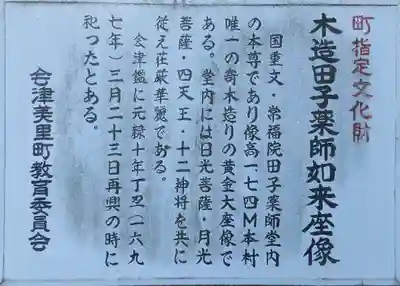 町指定文化財
木造田子薬師如来座像
国重文・常福院田子薬師堂内
の本尊であり像高一、七四M本村
唯一の寄木造りの黄金大座像で
ある。堂内には日光菩薩・月光
菩薩・四天王・十二神将を共に
従え荘厳華麗である。
会津鑑に元禄十年丁丑(一六九
七年)三月二十三日再興の時に
祀ったとある。
会津美里町教育委員会